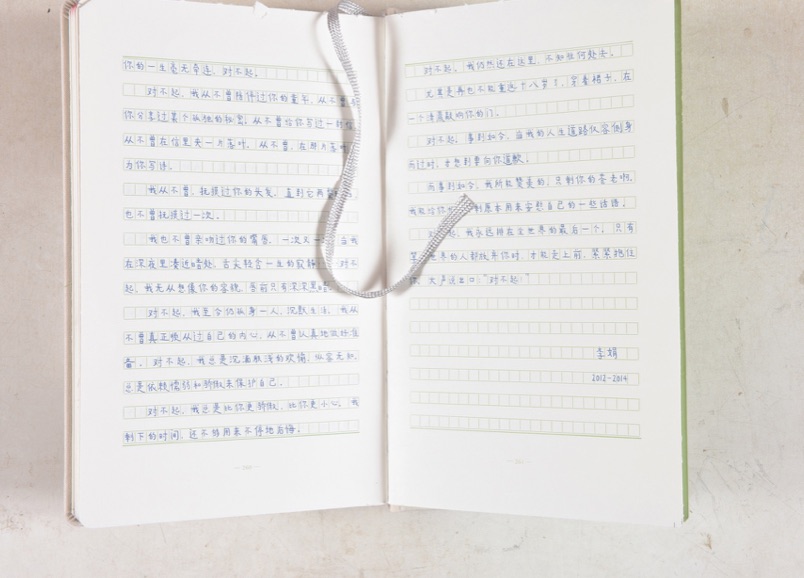 你的一生毫无牵连。对不起。
对不起，我从不曾陪伴过你的童年，从不曾与
你分享过某个孤独的秘密，从不曾给你写过一封信
从不曾在信里夹一片落叶，从不曾，在照片
为你写诗。
我从不曾，抚摸过你的头发，直到它两鬓
也不曾抚摸过一次。
我也不曾亲吻过你的嘴唇，一次又一 当我
在深夜里凑近暗处，舌尖轻含一生的寂静 对不
起，我无从想像你的容貌，唇前只有深深
对不起，我至今仍孤身一人，沉默生活。我从
不曾真正顺从过自己的内心，从不曾认真地做好准
备。对不起，我总是沉湎肤浅的欢愉，纵容无知，
总是依赖懦弱和骄傲来保护自己。
对不起，我总是比你更骄傲，比你更小心。我
剩下的时间，还不够用来不停地后悔。
对不起。我仍然还在这里，不知任何去处。
尤其是再也不能重返十八岁了，穿着裙子，在
一个清晨敲响你的门。
对不起，事到如今，当我的人生道路仅容侧身
而过时，才想到要向你道歉。
而事到如今，我所能赞美的，只剩你的苍老啊。
我能给你 剩原本用来安慰自己的一些话语。
对不起，我永远排在全世界的最后一个。只有
等 世界的人都放弃你时，才能走上前，紧紧抱住
你，大声说出口：“对不起！”
李娟
2012-2014